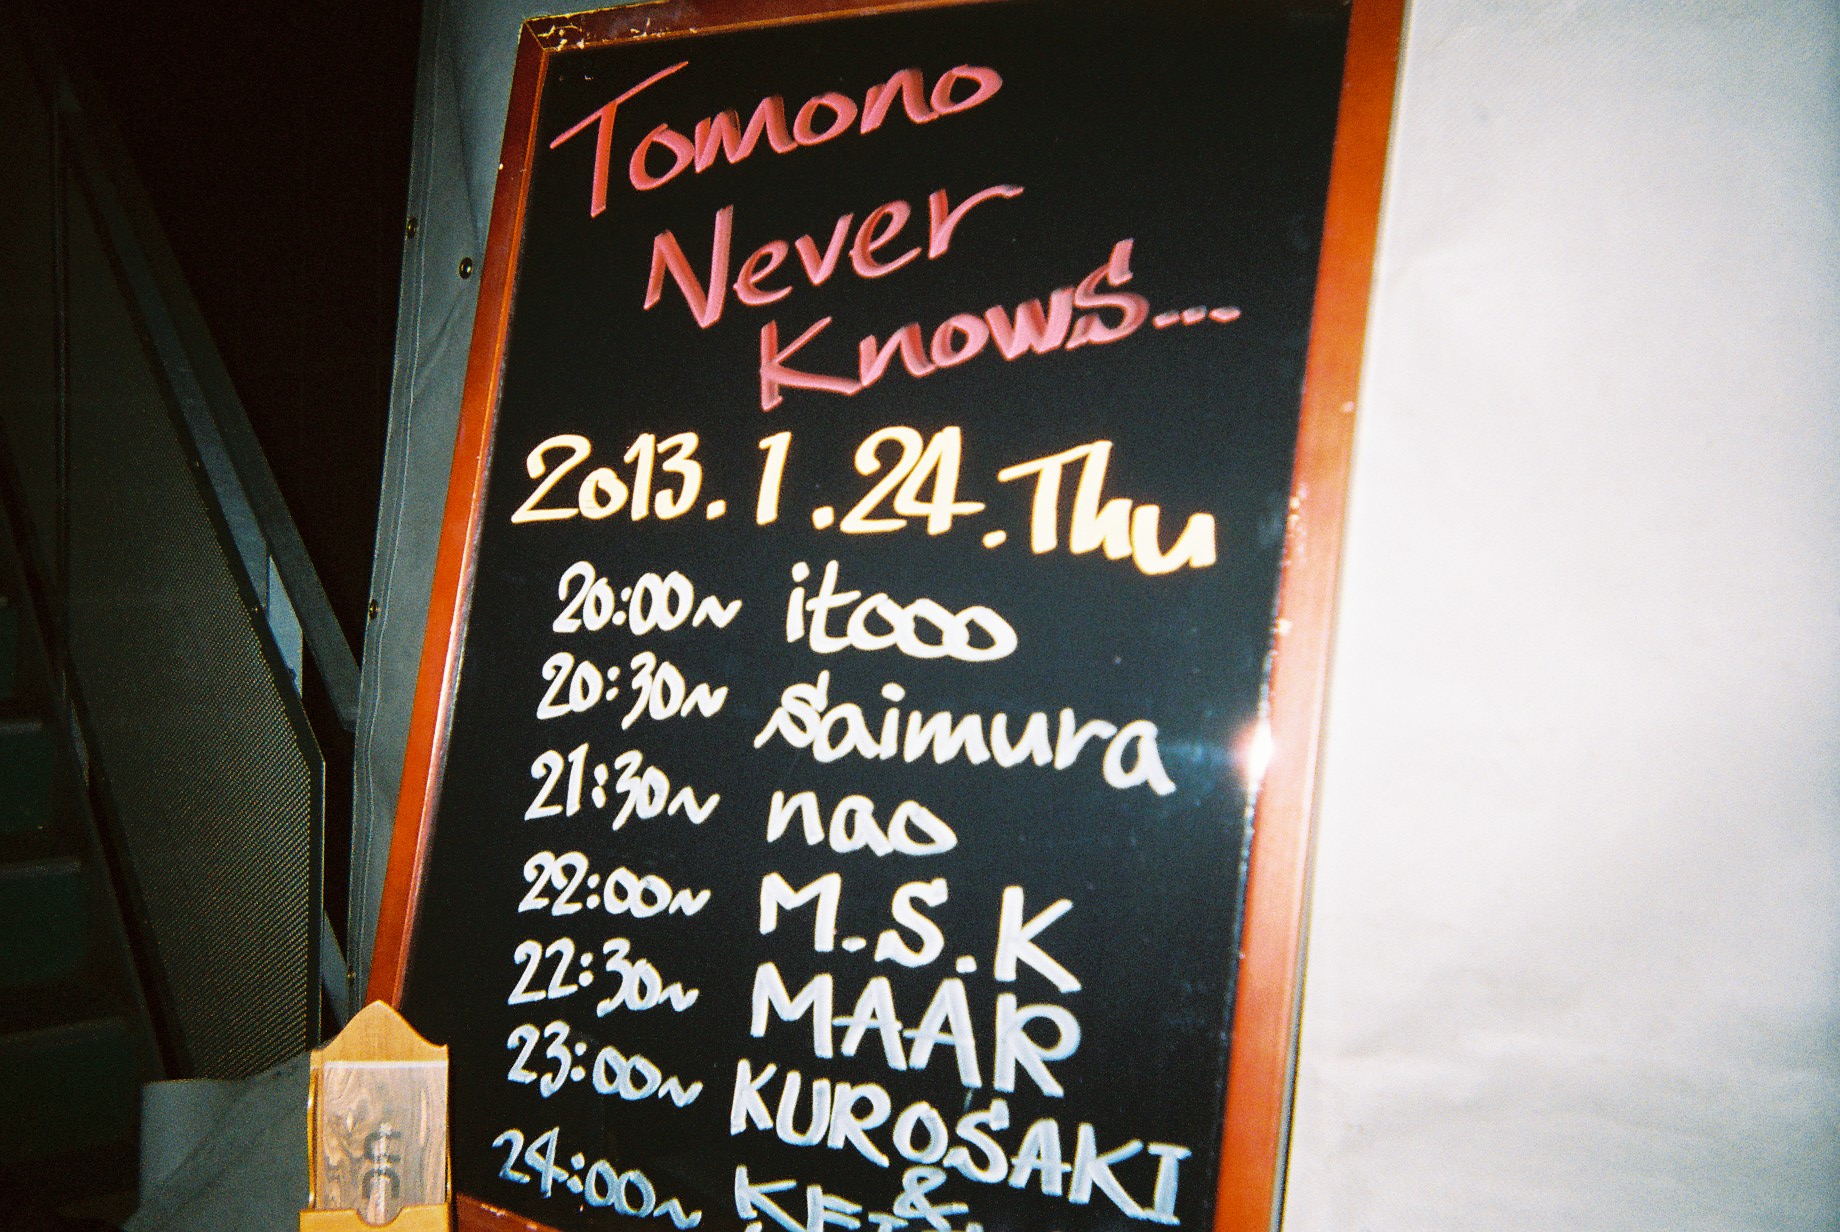 Tomono
Never
Knows...
2013.1.24.Thu
20:00~ itooo
20:30~ saimura
21:30~ nao
22:00~ M.S.K
22:30~ MAAR
23:00~ KUROSAKI
&
24:00~